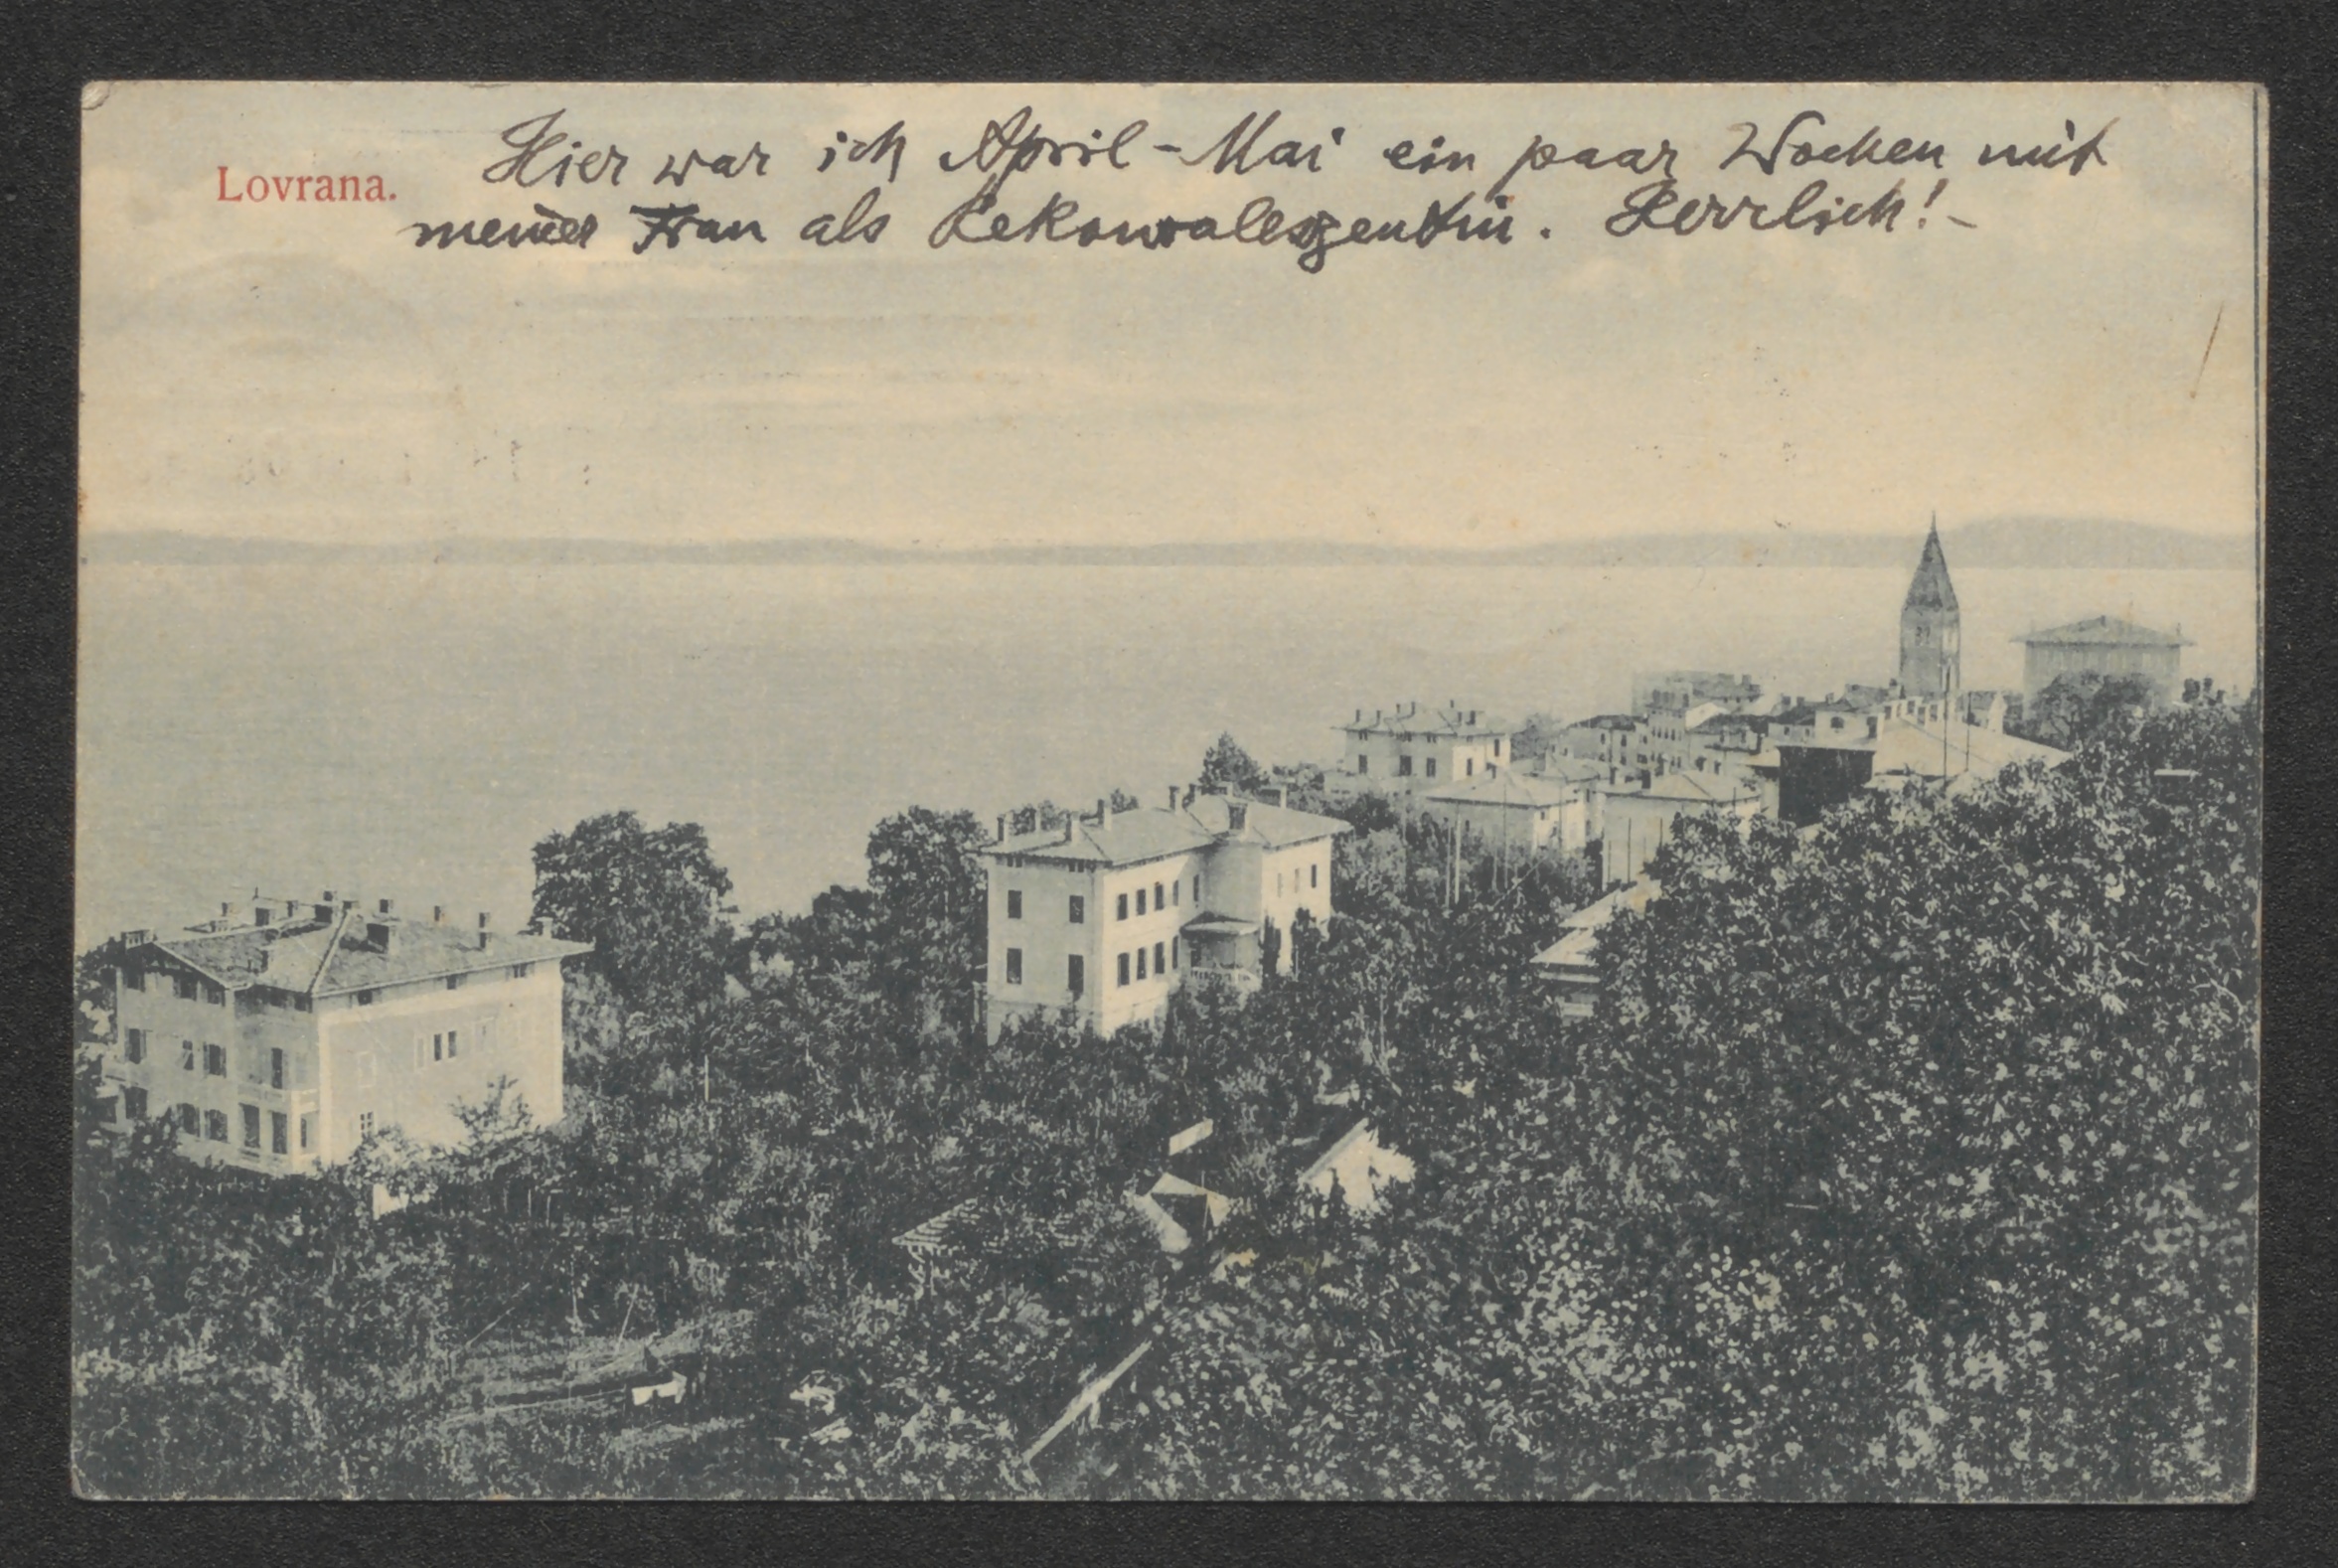 Lovrana.
Hier war ich April - Mai ein paar Wochen mit
meiner Frau als Rekonvaleszentin. Herrlich! -